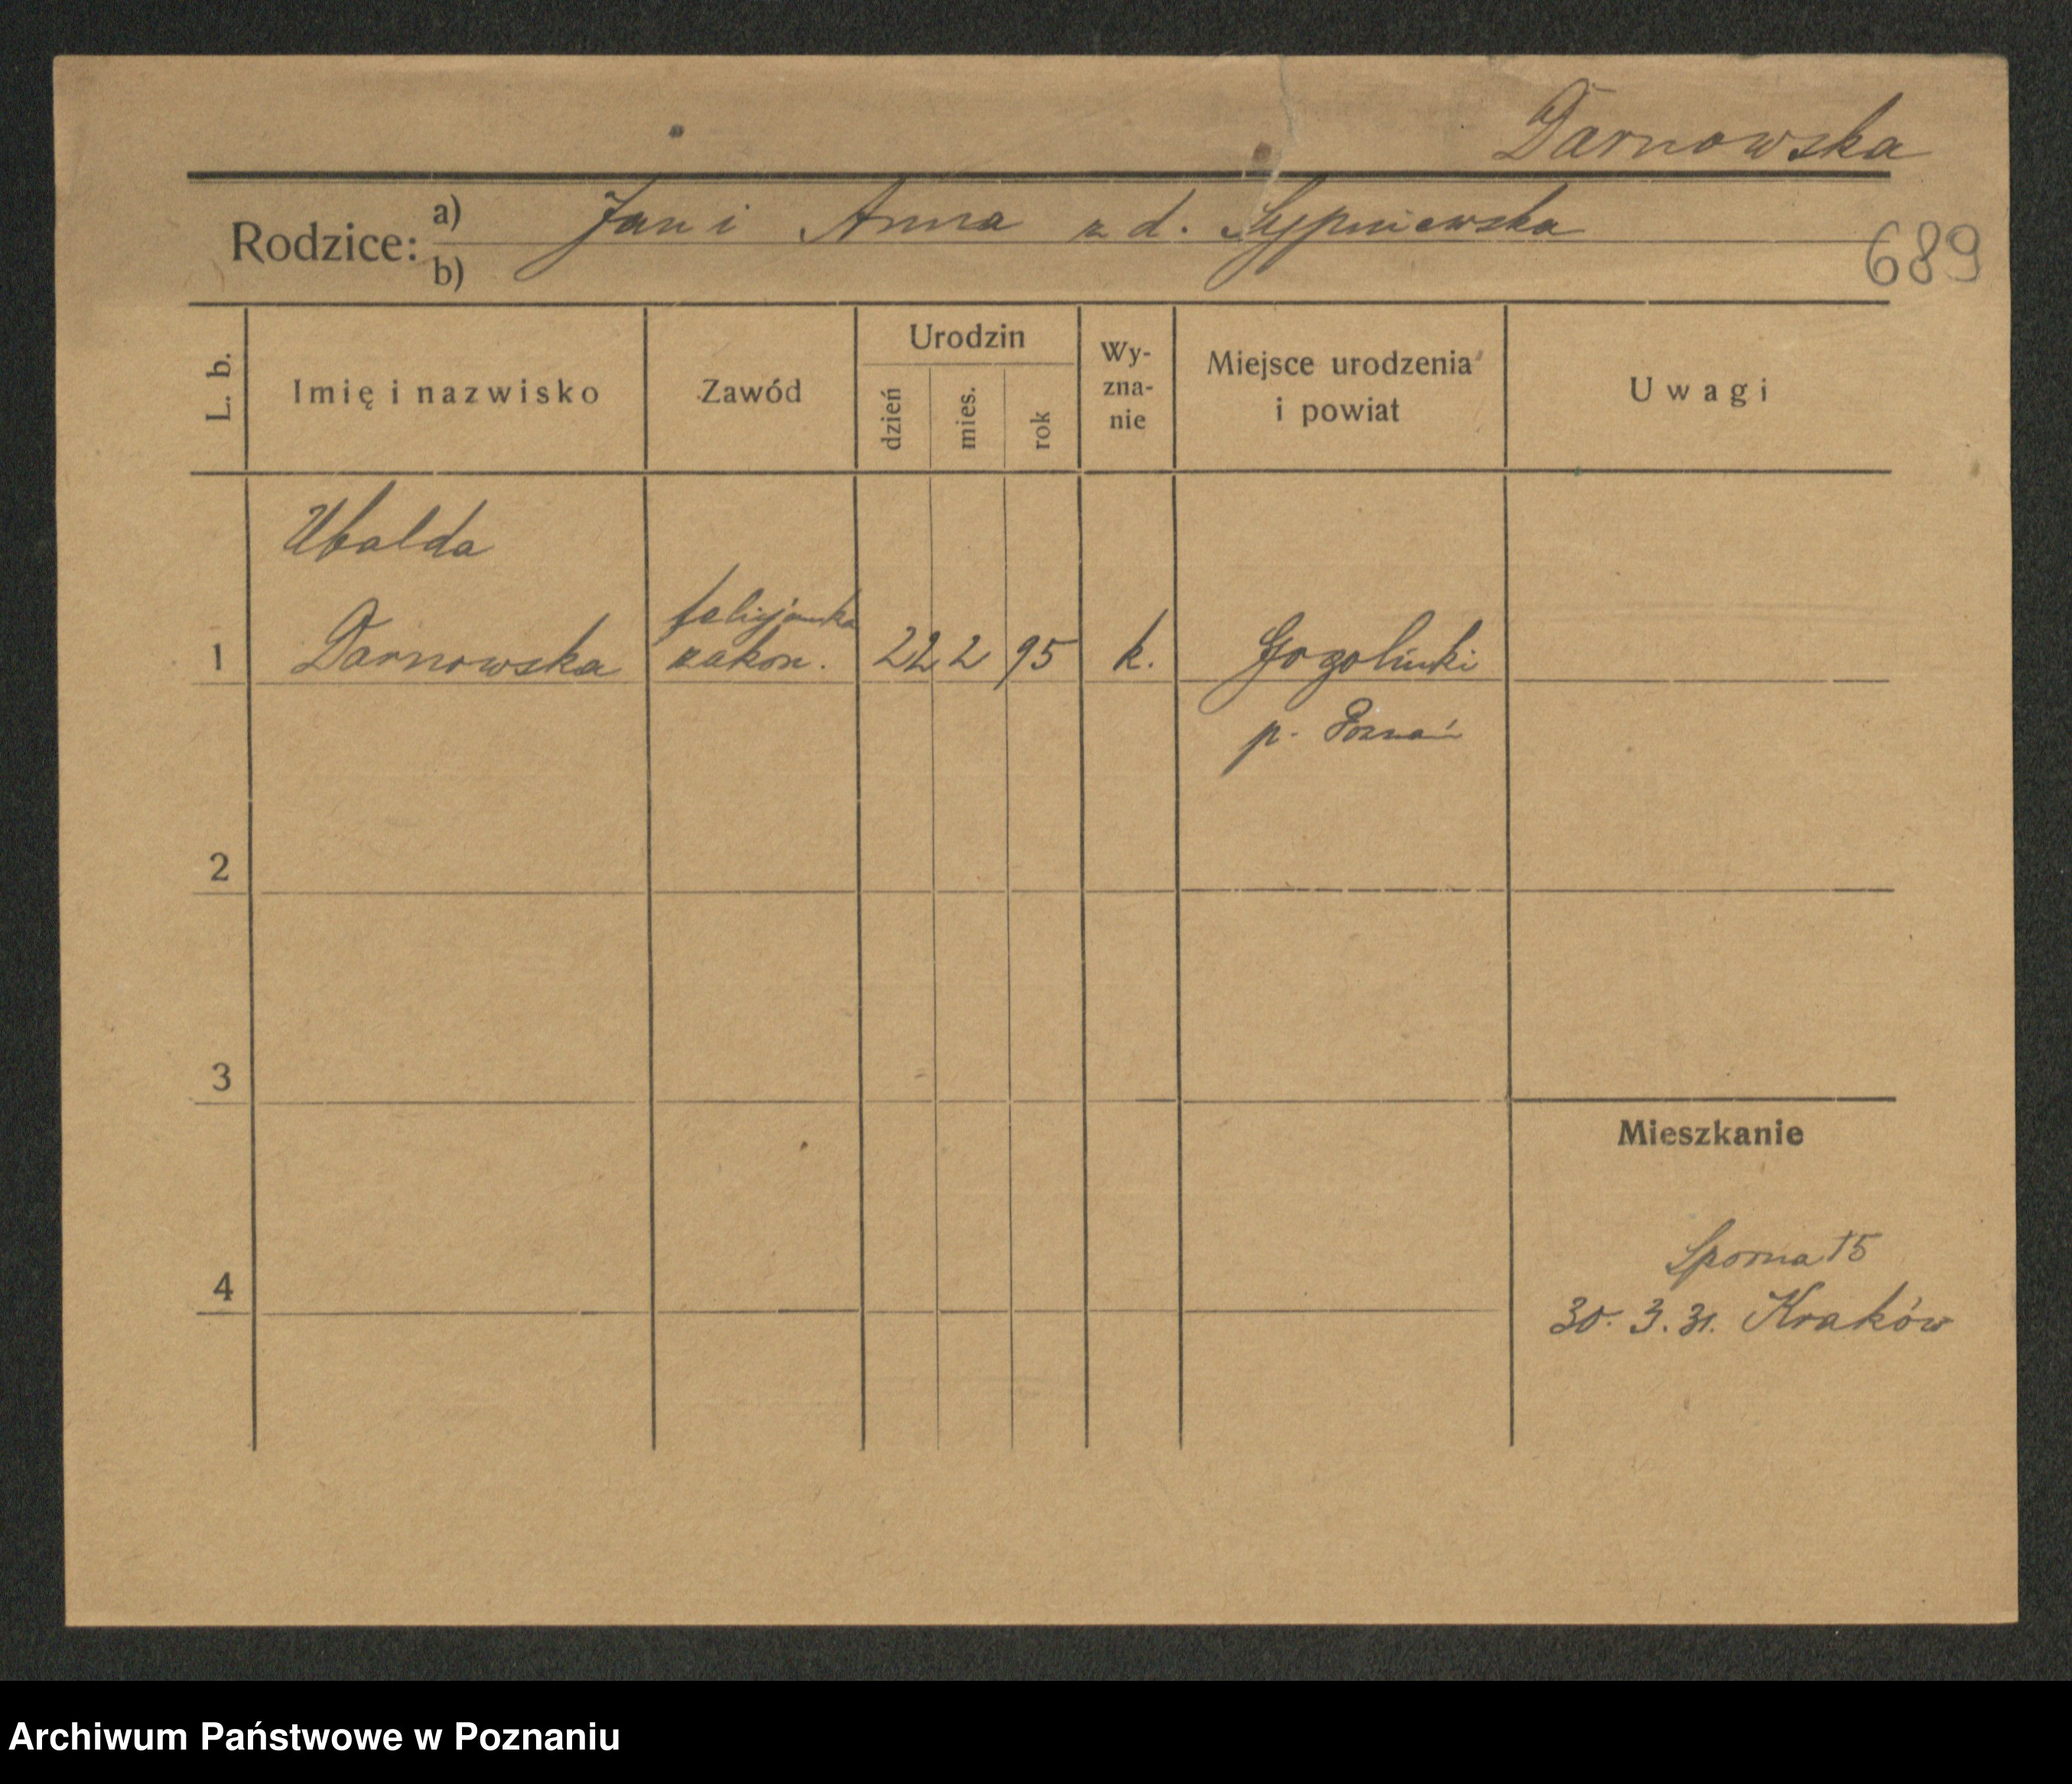 Darnowska
Rodzice: a) Jan i Anna z d. Sypniewska
b)
689
L. b.
Imię i nazwisko
Zawód
Urodzin
dzień
mies.
rok
Wy-
zna-
nie
Miejsce urodzenia
i powiat
Uwagi
Ubalda
felicjanka
1 Darnowska zakon. 22 2 95 k.
p. Poznań
2
3
Mieszkanie
Sporna 15
4
30. 3. 31. Kraków
Archiwum Państwowe w Poznaniu